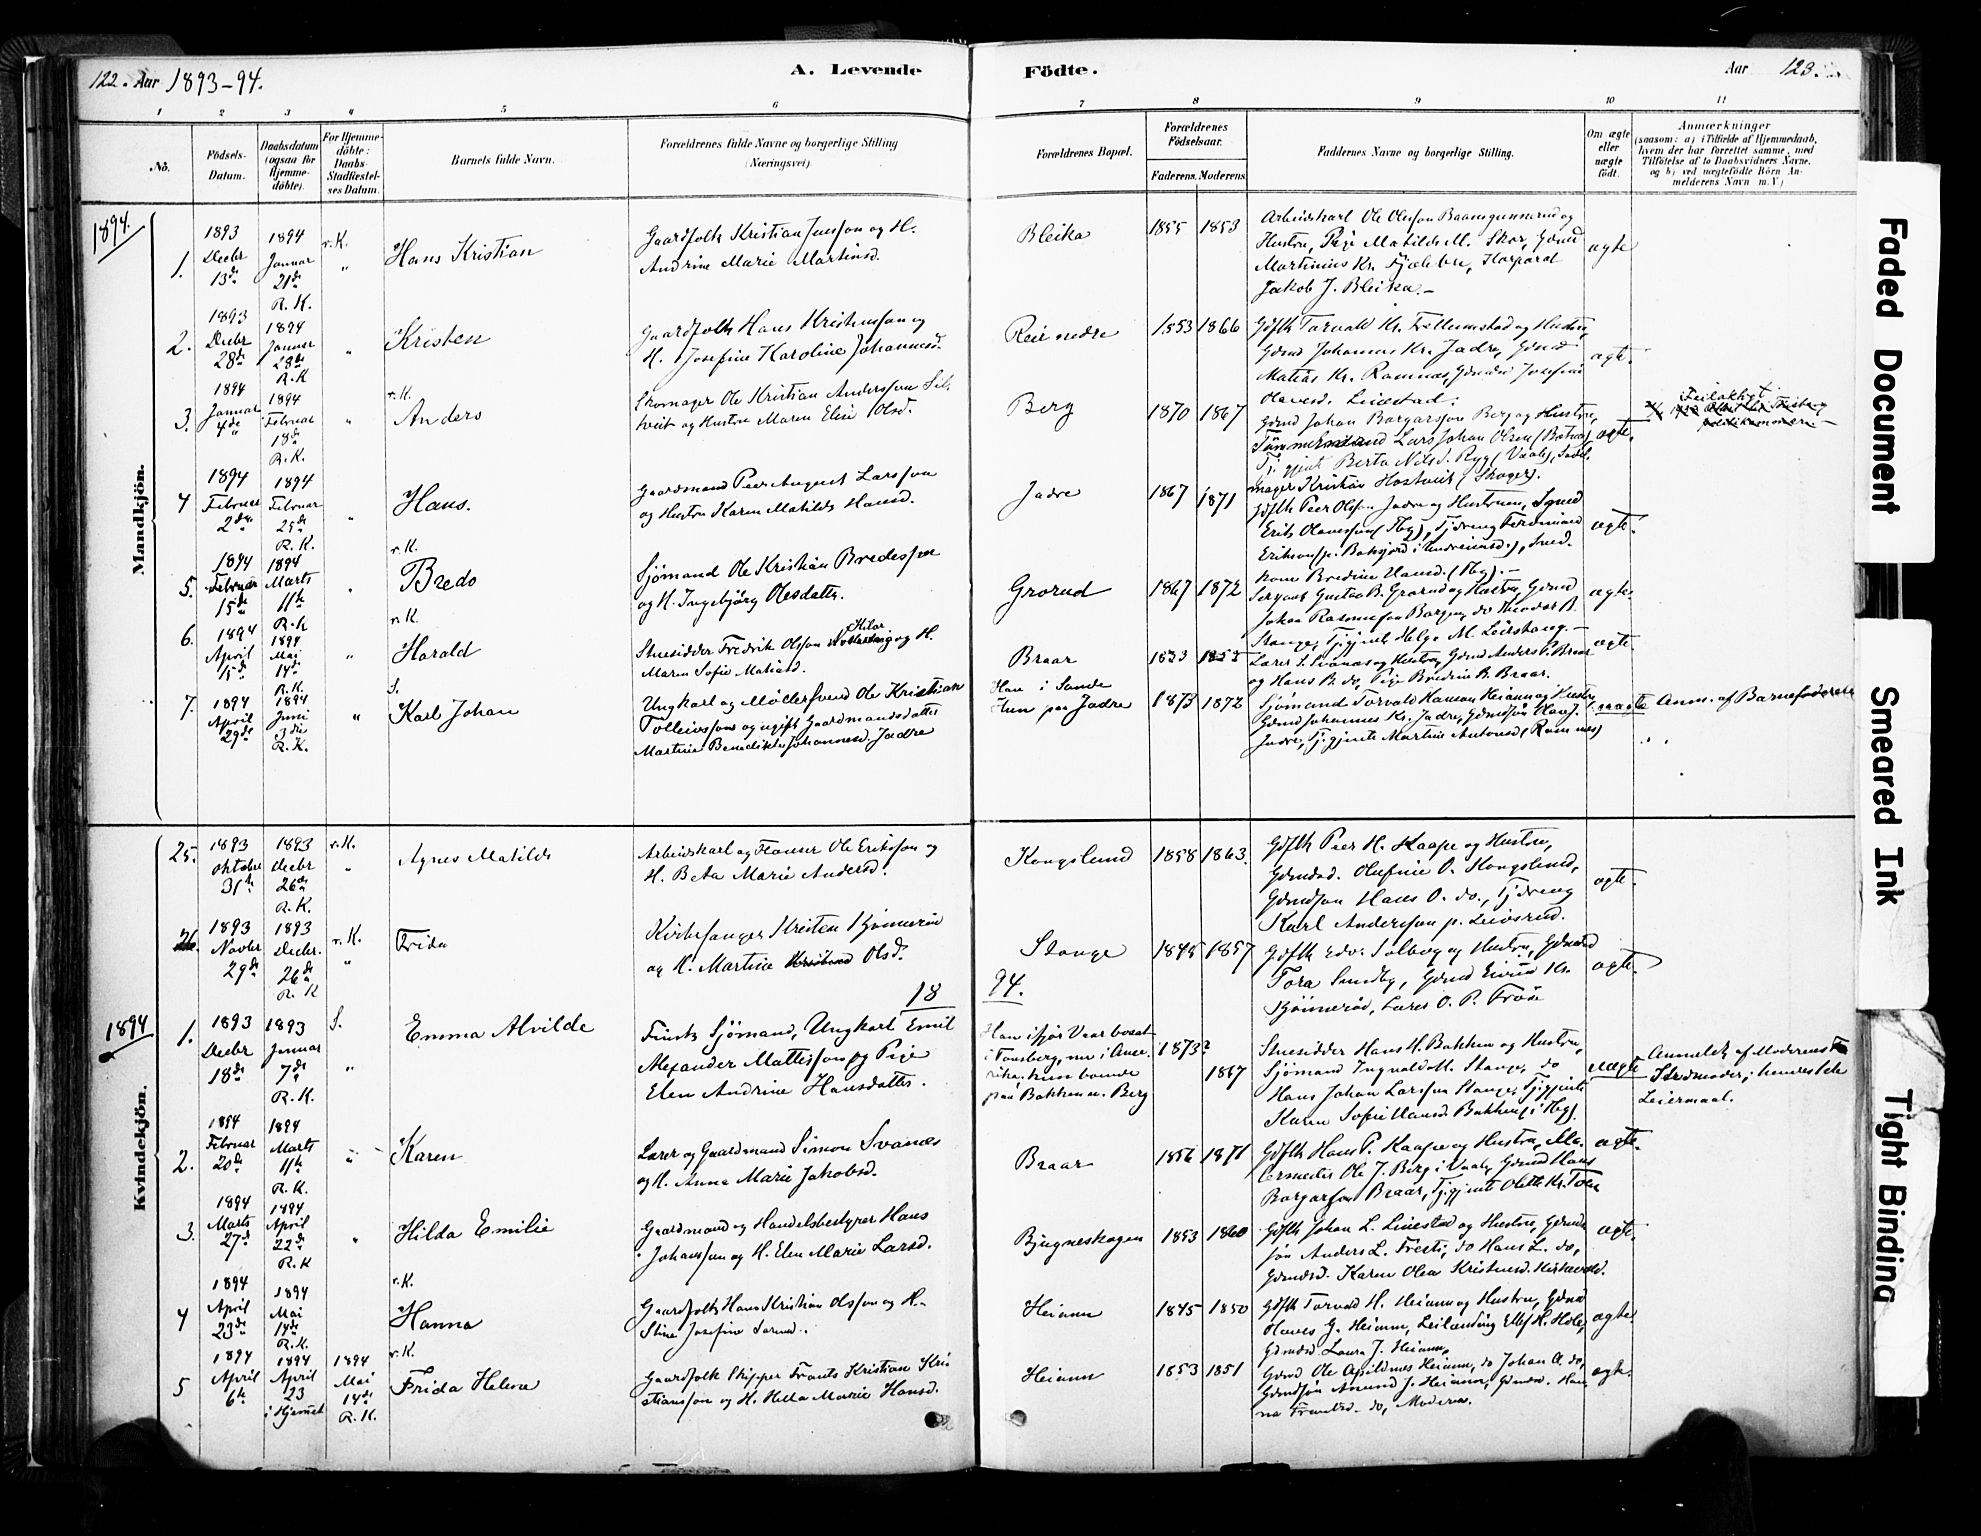 122. Aar 1893-94.
A. Levende
Födte.
Aar 123.
1 2 3 4 5 6 7 8 9 10 11
No.
Födsels-
Datum.
Daabsdatum
(ogsaa för
Hjemme-
döbte).
For Hjemme-
döbte:
Daabs-
Stadfæstel-
ses Datum.
Barnets fulde Navn.
Forældrenes fulde Navne og borgerlige Stilling
(Næringsvei)
Forældrenes Bopæl.
Forældrenes
Födselsaar.
Faderens. Moderens.
Faddernes Navne og borgerlige Stilling.
Om ægte
eller
uægte
födt.
Anmærkninger
(saasom: a) i Tilfælde af Hjemmedaab,
hvem der har forrettet samme, med
Tilföielse af to Daabsvidners Navne.
og b) ved uægtefödte Börn An-
melderens Navn m. V.)
1894.
Mandkjön.
1.
1893
Decbr
13de
1894
Januar
21de
R. K.
r. K.
"
Hans Kristian
Gaardfolk Kristian Jensson og H.
Andrine Marie Martinsd.
Bleika
1855 1853
Arbeidskarl Ole Olefson Baamgunnerud og
Hustru, Pige Matilde M. Skar, Gdmd
Martinius Kr. Fjæleben, Korporal
Jakob J. Bleika.-
ægte
2.
1893
Decbr
28de
1894
Januar
28de
R. K
"
Kristen
Gaardfolk Hans Kristensson og
H. Josefine Karoline Johannesd.
Reir nedre
1853 1866
Gdfolk Torvald Kr. og Hustru,
Gdmd Johannes Kr. Jadre, Gdmd
Matias Kr. Ramnæs, Josefine
Havesd. Leiestad.
ægte.
3.
1894
Januar
4de
1894
Februar
18de
R. K.
"
r. K.
Anders
Skomager Ole Kristian Andersson Sel-
tveit og Hustru Maren Elise Olsd.
Berg
1870 1867
Gdmd Johan Borgarsson Berg og Hustru,
Tømmermand Lars Johan Olsen
Tj. gjent Berta Nilsd. Ryg (Vaale), Sadel-
mager Kristian Hostveit (Skoger).
ægte.
4
1894
Februar
2den
1894
Februar
25de
R. K.
"
Hans.
Gaardmand Peer August Larsson
og Hustru Karen Matilde Hansd.
Jadre
1867 1871
Gdfolk Peer Olsson Jadre og Hustru,
Erik Olavesson (Tbg), Tj.dreng Ferdinand
kone Bredine Hansd. (Tbg).-
ægte.
5.
1894
Februar
15de
1894
Marts
11te
R. K
"
r. K.
Bredo
Sjömand Ole Kristian Bredesson
og H. Ingebjörg Olesdatter.
Grorud
1867 1872
Sergant Gustav B. Grorud og Hustru, Gdmd
Johan Rasmusson Bargen, do Theodor B.
Stange, Tj.gjent Helga M. Leirskaug.-
ægte.
6.
1894
April
15de
1894
Mai
14de
R. K.
"
r. K.
Harald
Stuesidder Fredrik Olsson og H.
Maren Sofie Matiasd.
Braar
1853 1855
Lærer S. Svanæs og Hustru, Gdmd Anders P. Braar
og Hans B. do, Pige Bredine B. Braar.
ægte
7.
1894
April
29de
1894
Juni
3die
R. K.
"
S.
Karl Johan
Ungkarl og Møllersvend Ole Kristian
Tolleivsson og ugift Gaardmandsdatter
Martine Benedikte Johannesd. Jadre
Han i Sande
Hun paa Jadre
1873 1872
Sjömand Torvald Hanson Heiann og Hustru
Gdmd Johannes Kr. Jadre, Gdmdsön Hans J.
Jadre, Tj.gjente Martine Antonsd (Ramnæs)
uægte
Anm. af Barnefaderen
Kvindekjön.
25.
1893
Oktobr
31te
1893
Decbr
26de
R. K.
r. K.
"
Agnes Matilde
Arbeidskarl og Flouer Ole Eriksson og
H. Berta Marie Andersd.
Kongslund
1858 1863.
Gdfolk Peer H. Kaape og Hustru,
Gdmdsd. Olufine O. Kongslund,
Gdmdsön Hans O. do., Tj.dreng
Karl Andersson p. Leiosrud.
ægte.
26.
1893
Novbr
29de
1893
Decbr.
26de
R. K
r. K.
"
Frida
Kirkesanger Kristen Bjönnerud
og H. Martine Olsd.
Stange
1845 1857
Gdfolk Edv. Solberg og Hustru, Gdmdsd
Tora Sundby, Gdmd Eivind Kr.
Bjönneröd, Lærer O. P. Tröa
ægte.
18 94.
1894
1.
1893
Decbr
18de
1893
Januar
7de
R. K.
S.
"
Emma Alvilde
Finsk Sjömand, Ungkarl Emil
Alexander Mattisson og Pige
Elen Andrine Hansdatter.
Han ifjor Vaar bosat
i Tønsberg, nu i Ame-
rika; hun boende
paa Bakken u. Berg
1873? 1867
Stuesidder Hans H. Bakken og Hustru,
Sjömand Ingvald M. Stange, do
Hans Johan Larsson Stange, Tj.gjente
Karen Sofie Hansd. Bakken (i Tbg).
uægte
Anmeldt af Moderens
Stedmoder; hendes 1ste
Leiermaal.
2.
1894
Februar
20de
1894
Marts
11te
R. K.
"
Karen
Lærer og Gaardmand Simon Svanæs
og H. Anna Marie Jakobsd.
Braar
1856 1871
Gdfolk Hans P. Kaape og Hustru, Ma-
Ole J. Berg i Vaale, Gdmd Hans
Borgarson Braar, Tj.gjente Olette Kr. Toen
ægte.
3.
1894
Marts
27de
1894
April
22de
R. K
"
Hilda Emilie
Gaardmand og Handelsbestyrer Hans
Johansson og H. Elen Marie Larsd.
Bjugneskogen
1853 1860
Gdfolk Johan L. Linestad og Hustru, Gdmds-
sön Anders L. Fresti, do Hans L. do,
Gdmdsd. Karen Olea Kristensd. Kirkevold.
ægte.
4
1894
April
23de
1894
Mai
14de
R. K.
r. K.
Hanna
Gaardfolk Hans Kristian Olsson og H.
Stine Josefine Sörensd.
Heiann
1845 1850
Gdfolk Torvald H. Heiann og Hustru, Gdmd
Haves G. Heiann, Leilænding Ellef H. Hole,
Gdmdsd. Laura J. Heiann.
ægte
5
1894
April
6te
1894
April
23
i Hjemmet
1894
Mai
14de
R. K.
r. K.
Frida Helene
Gaardfolk Skipper Frants Kristian Kris-
tiansson og H. Hella Marie Hansd.
Heiann
1853 1851
Gdmd Ole Apildnes Heiann, do Johan A. do,
Gdmdsön Anund J. Heiann, Gdmdsd. Han-
na Frantsd. do, Moderen.
ægte.
Faded Document
Smeared Ink
Tight Binding